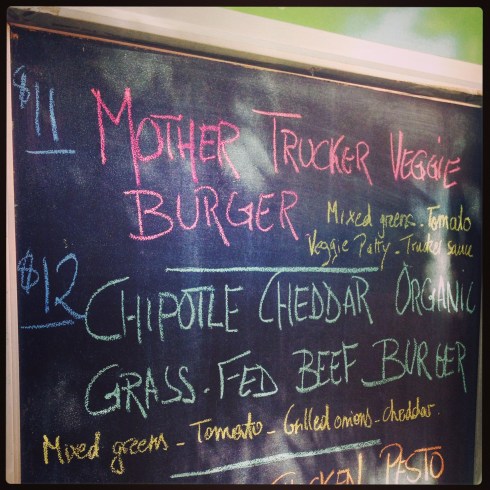 $11 MOTHER TRUCKER VEGGIE
BURGER
Mixed greens - Tomato
Veggie Patty - Trucker sauce
$12 CHIPOTLE CHEDDAR ORGANIC
GRASS-FED BEEF BURGER
Mixed greens - Tomato - Grilled onions - cheddar.
CHICKEN PESTO